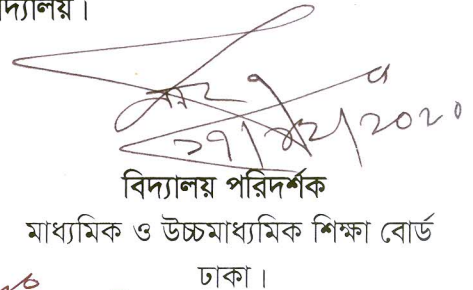 দ্যালয়।
২৭/১২/২০২০
বিদ্যালয় পরিদর্শক
মাধ্যমিক ও উচ্চমাধ্যমিক শিক্ষা বোর্ড
ঢাকা।